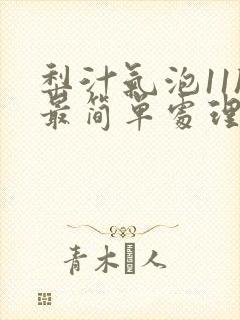 梨汁氣泡11P
最简單處理
青木人